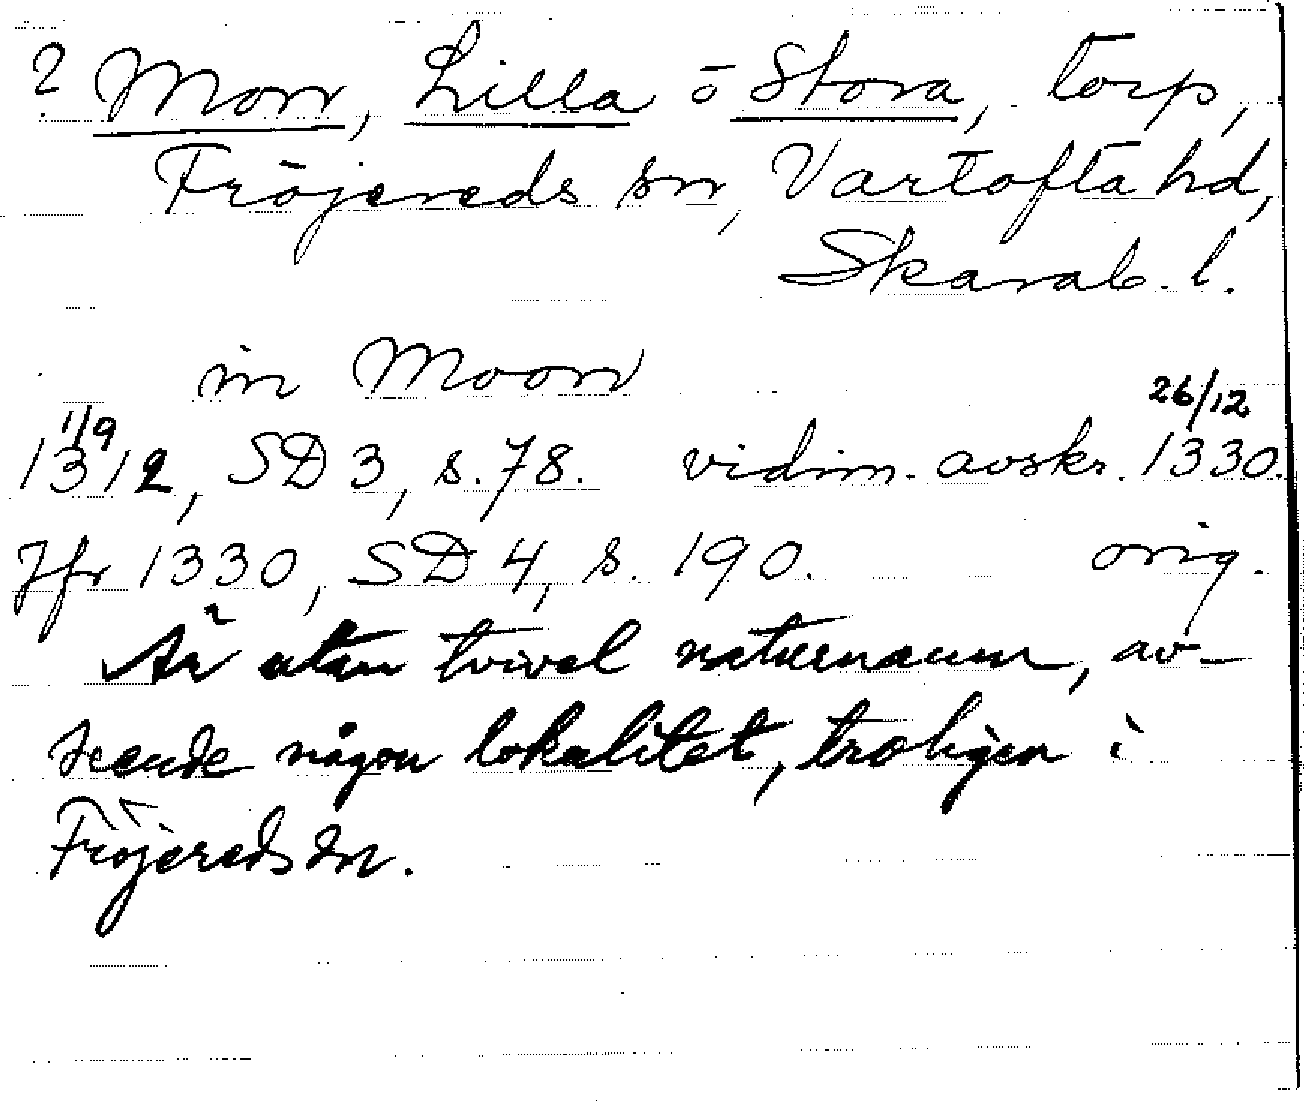 ? Morr, Lilla o Stora, torp,
Fröjereds sn, Vartofta hd,
Skarab. l.
in Moorr
1/9 26/12
1312, SD 3, s. 78. vidim. avskr. 1330.
Jfr 1330, SD 4, s. 190. orig.
Är utan tvivel naturnamn, av-
seende någon lokalitet, troligen i
Fröjereds sn.